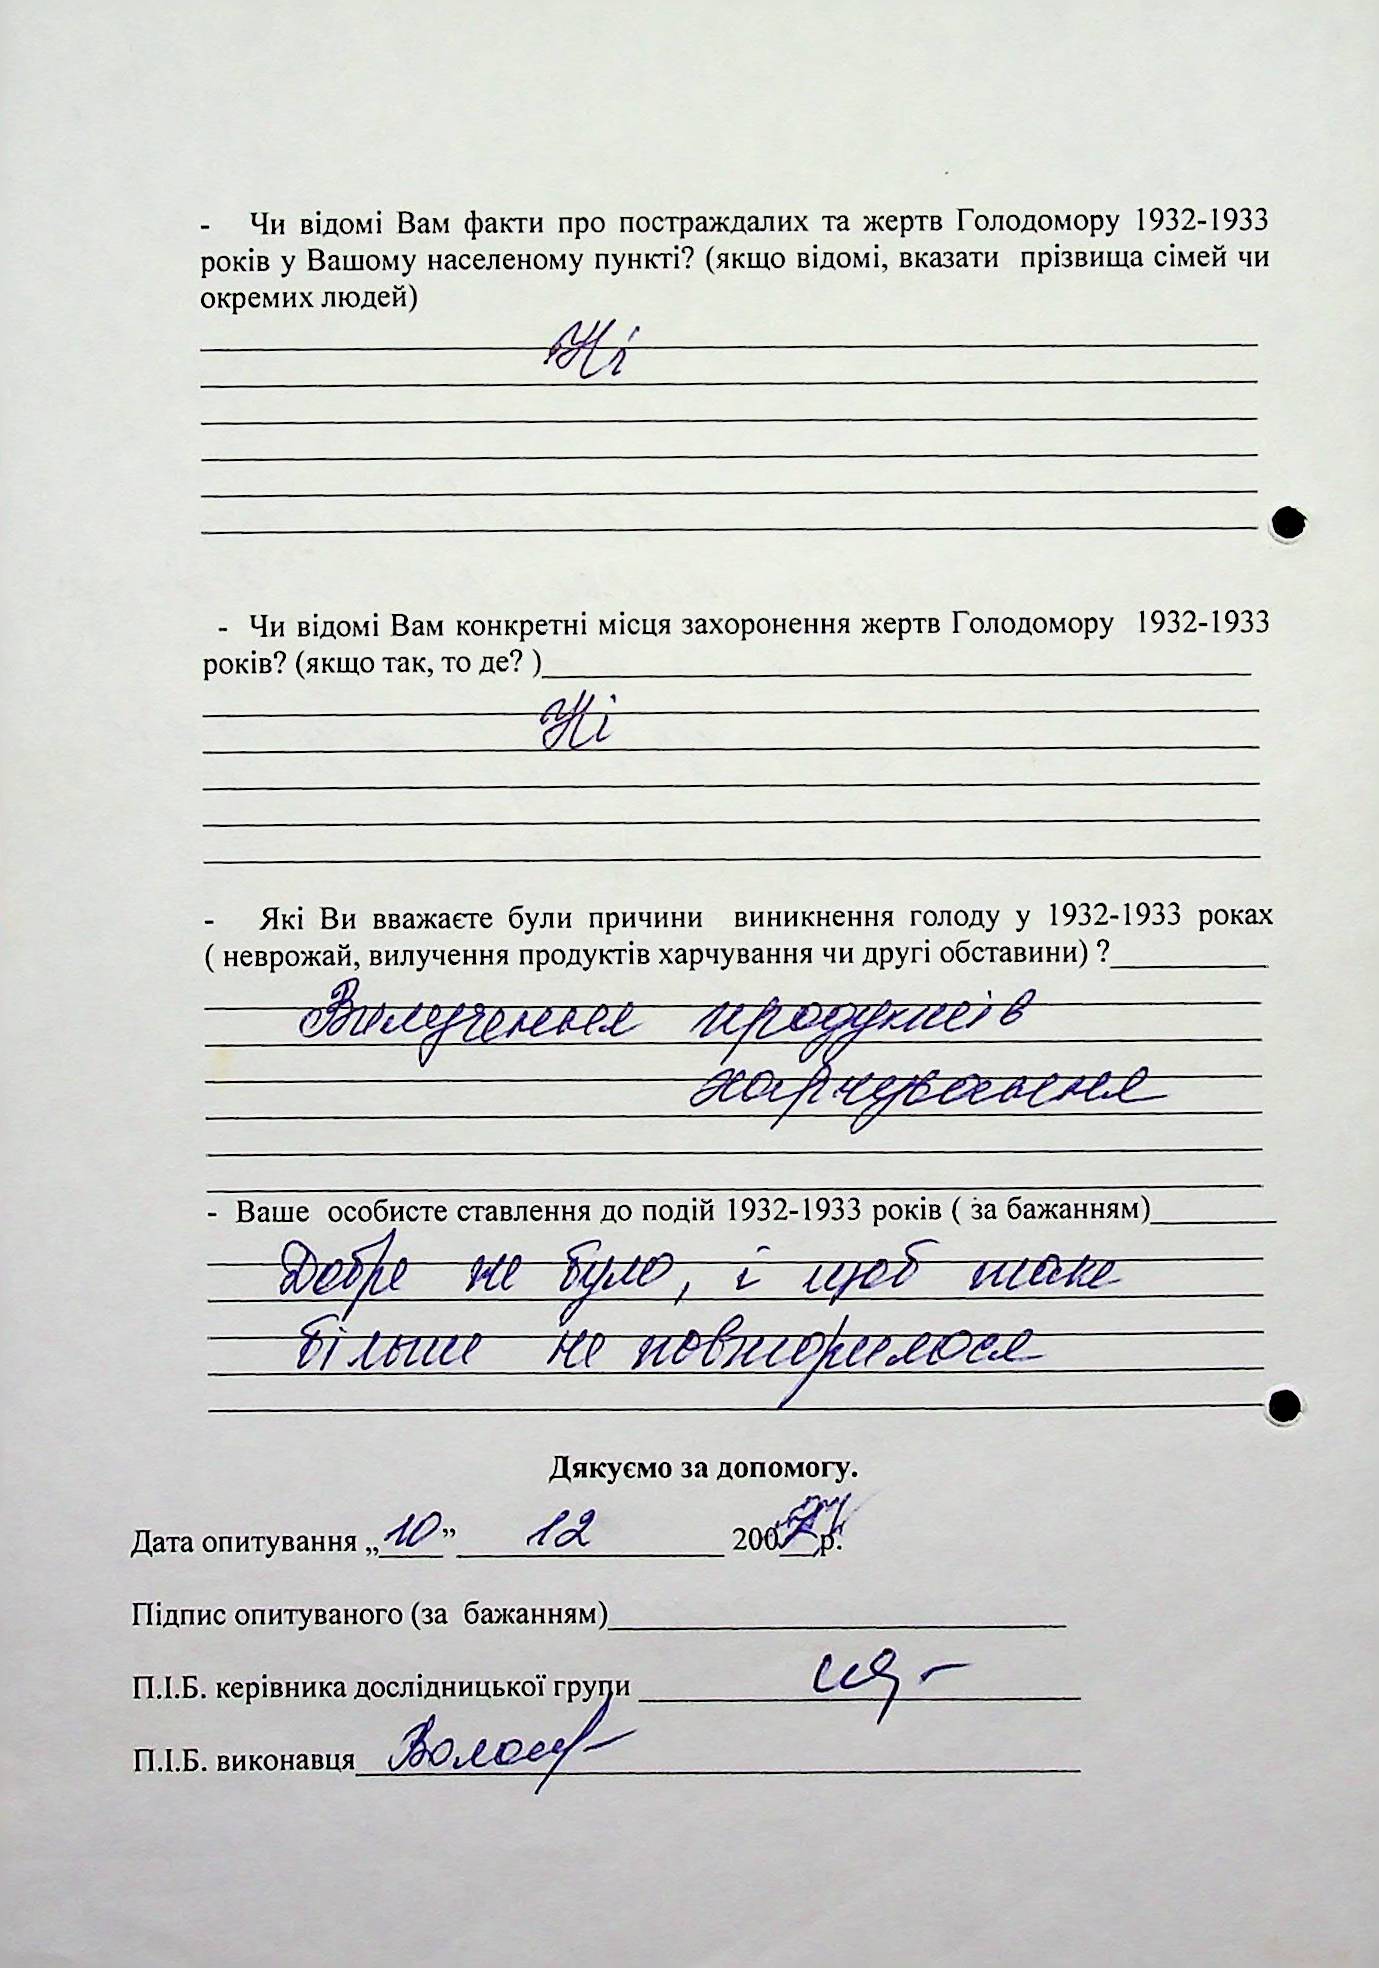 - Чи відомі Вам факти про постраждалих та жертв Голодомору 1932-1933
років у Вашому населеному пункті? (якщо відомі, вказати прізвища сімей чи
окремих людей)
Ні
- Чи відомі Вам конкретні місця захоронення жертв Голодомору 1932-1933
років? (якщо так, то де? )
Ні
- Які Ви вважаєте були причини виникнення голоду у 1932-1933 роках
( неврожай, вилучення продуктів харчування чи другі обставини) ?
Вилучення продуктів
харчування
- Ваше особисте ставлення до подій 1932-1933 років ( за бажанням)
Добре не було, і щоб таке
більше не повторилося
Дякуємо за допомогу.
Дата опитування „10” 12 200 р.
Підпис опитуваного (за бажанням)
П.І.Б. керівника дослідницької групи
П.І.Б. виконавця